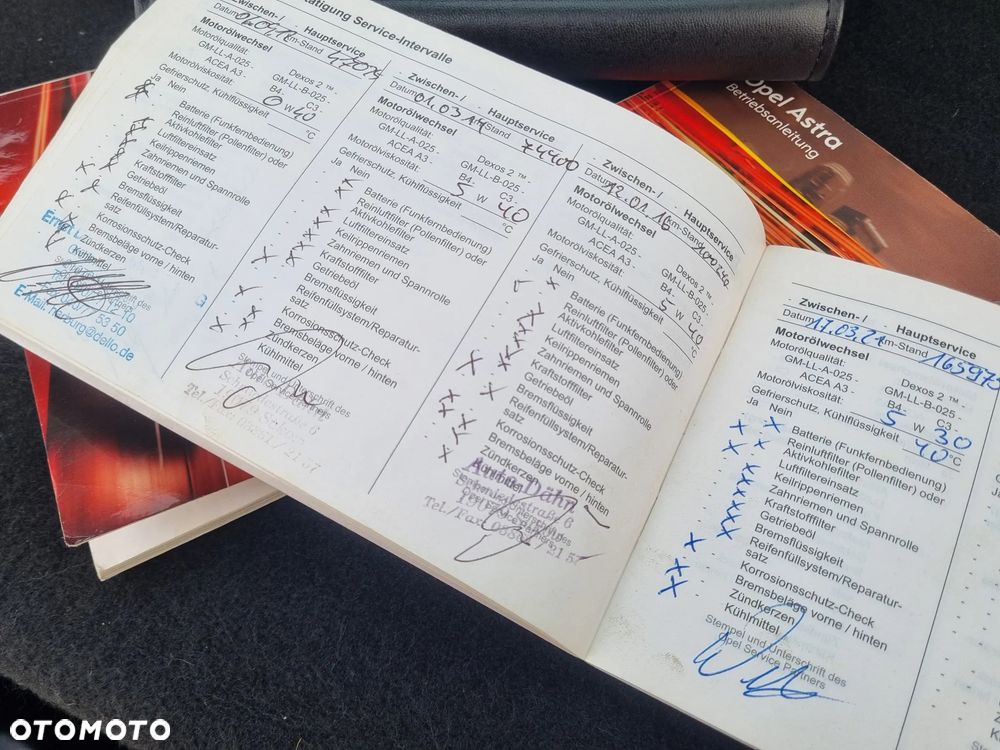 Bestätigung Service-Intervalle
Zwischen- / Hauptservice
Datum km-Stand
Motorölwechsel
Motorölqualität: Dexos 2 ™ -
GM-LL-A-025 - GM-LL-B-025 -
ACEA A3 - B4 - C3 -
Motorölviskosität: 0 W 40
Gefrierschutz, Kühlflüssigkeit °C
Ja Nein
Batterie (Funkfernbedienung)
Reinluftfilter (Pollenfilter) oder
Aktivkohlefilter
Luftfiltereinsatz
Keilrippenriemen
Zahnriemen und Spannrolle
Kraftstofffilter
Getriebeöl
Bremsflüssigkeit
Reifenfüllsystem/Reparatur-
satz
Korrosionsschutz-Check
Bremsbeläge vorne / hinten
Zündkerzen
Kühlmittel
53 50
Zwischen- / Hauptservice
Datum 01.03.14 km-Stand 74400
Motorölwechsel
Motorölqualität: Dexos 2 ™ -
GM-LL-A-025 - GM-LL-B-025 -
ACEA A3 - B4 - C3 -
Motorölviskosität: 5 W 40
Gefrierschutz, Kühlflüssigkeit °C
Ja Nein
Batterie (Funkfernbedienung)
Reinluftfilter (Pollenfilter) oder
Aktivkohlefilter
Luftfiltereinsatz
Keilrippenriemen
Zahnriemen und Spannrolle
Kraftstofffilter
Getriebeöl
Bremsflüssigkeit
Reifenfüllsystem/Reparatur-
satz
Korrosionsschutz-Check
Bremsbeläge vorne / hinten
Zündkerzen
Kühlmittel
Stempel und Unterschrift des
Opel Service Partners
Zwischen- / Hauptservice
Datum 12.01.16 km-Stand
Motorölwechsel
Motorölqualität: Dexos 2 ™ -
GM-LL-A-025 - GM-LL-B-025 -
ACEA A3 - B4 - C3 -
Motorölviskosität: 5 W 40
Gefrierschutz, Kühlflüssigkeit °C
Ja Nein
Batterie (Funkfernbedienung)
Reinluftfilter (Pollenfilter) oder
Aktivkohlefilter
Luftfiltereinsatz
Keilrippenriemen
Zahnriemen und Spannrolle
Kraftstofffilter
Getriebeöl
Bremsflüssigkeit
Reifenfüllsystem/Reparatur-
satz
Korrosionsschutz-Check
Bremsbeläge vorne / hinten
Zündkerzen
Kühlmittel
Tel./Fax
Zwischen- / Hauptservice
Datum 17.03.21 km-Stand
Motorölwechsel
Motorölqualität: Dexos 2 ™ -
GM-LL-A-025 - GM-LL-B-025 -
ACEA A3 - B4 - C3 -
Motorölviskosität: 5 W 30
Gefrierschutz, Kühlflüssigkeit 40 °C
Ja Nein
Batterie (Funkfernbedienung)
Reinluftfilter (Pollenfilter) oder
Aktivkohlefilter
Luftfiltereinsatz
Keilrippenriemen
Zahnriemen und Spannrolle
Kraftstofffilter
Getriebeöl
Bremsflüssigkeit
Reifenfüllsystem/Reparatur-
satz
Korrosionsschutz-Check
Bremsbeläge vorne / hinten
Zündkerzen
Kühlmittel
Stempel und Unterschrift des
Opel Service Partners
Opel Astra
Betriebsanleitung
OTOMOTO